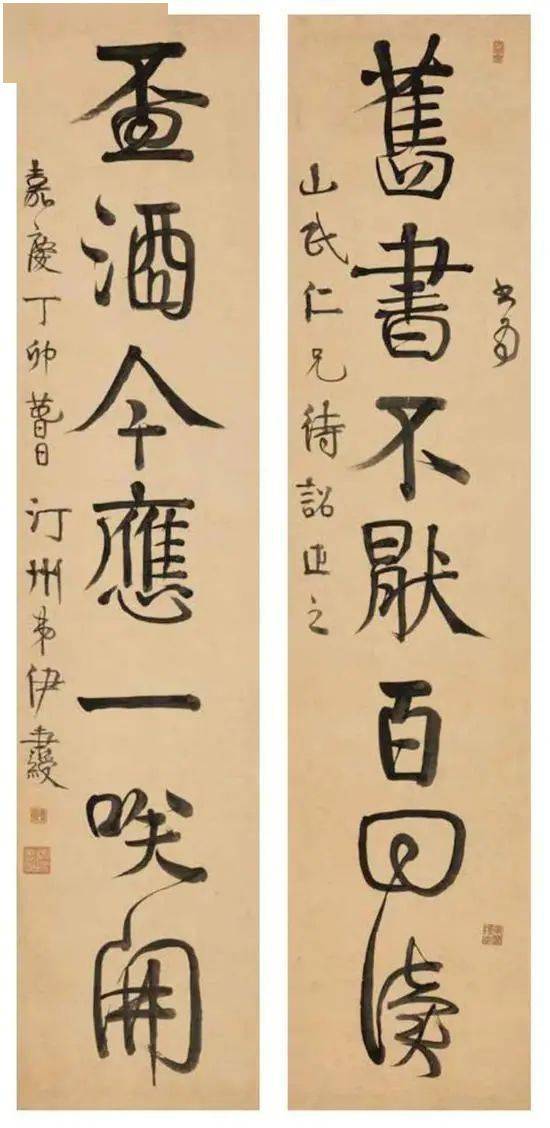 書為
舊書不猒百回讀
山民仁兄待詔正之
盃酒今應一咲開
嘉慶丁卯萅日汀州弟伊秉綬